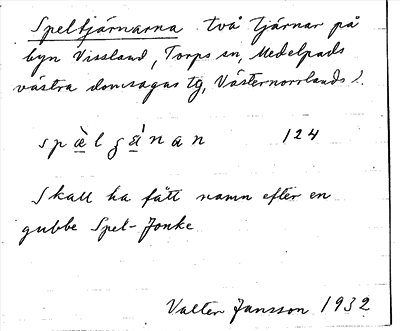 Speltjärnarna två tjärnar på
byn Vissland, Torps sn, Medelpads
västra domsagas tg, Västernorrlands l.
spæ̀lgä̀nan 124
Skall ha fått namn efter en
gubbe Spel-Jonke
Valter Jansson 1932